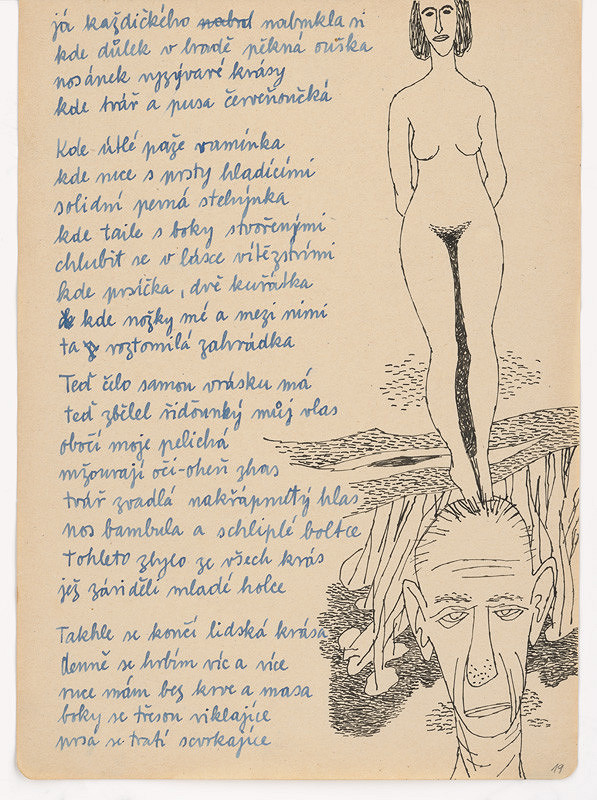 já každičkého nabral nabrnkla si
kde důlek v bradě pěkná ouška
nosánek vyzývavé krásy
kde tvář a pusa červeňoučká
Kde útlé paže ramínka
kde ruce s prsty hladícími
solidní pevná stehýnka
kde taile s boky stvořenými
chlubit se v lásce vítězstvími
kde prsíčka, dvě kuřátka
kde nožky mé a mezi nimi
ta roztomilá zahrádka
Teď čelo samou vrásku má
teď zbělel řiďounký můj vlas
obočí moje pelichá
mžourají oči-oheň zhas
tvář zvadlá nakřápnutý hlas
nos bambula a schliplé boltce
Tohleto zbylo ze všech krás
jež záviděli mladé holce
Takhle se končí lidská krása
denně se hrbím víc a více
ruce mám bez krve a masa
boky se třesou viklajíce
prsa se tratí scvrkajíce
19